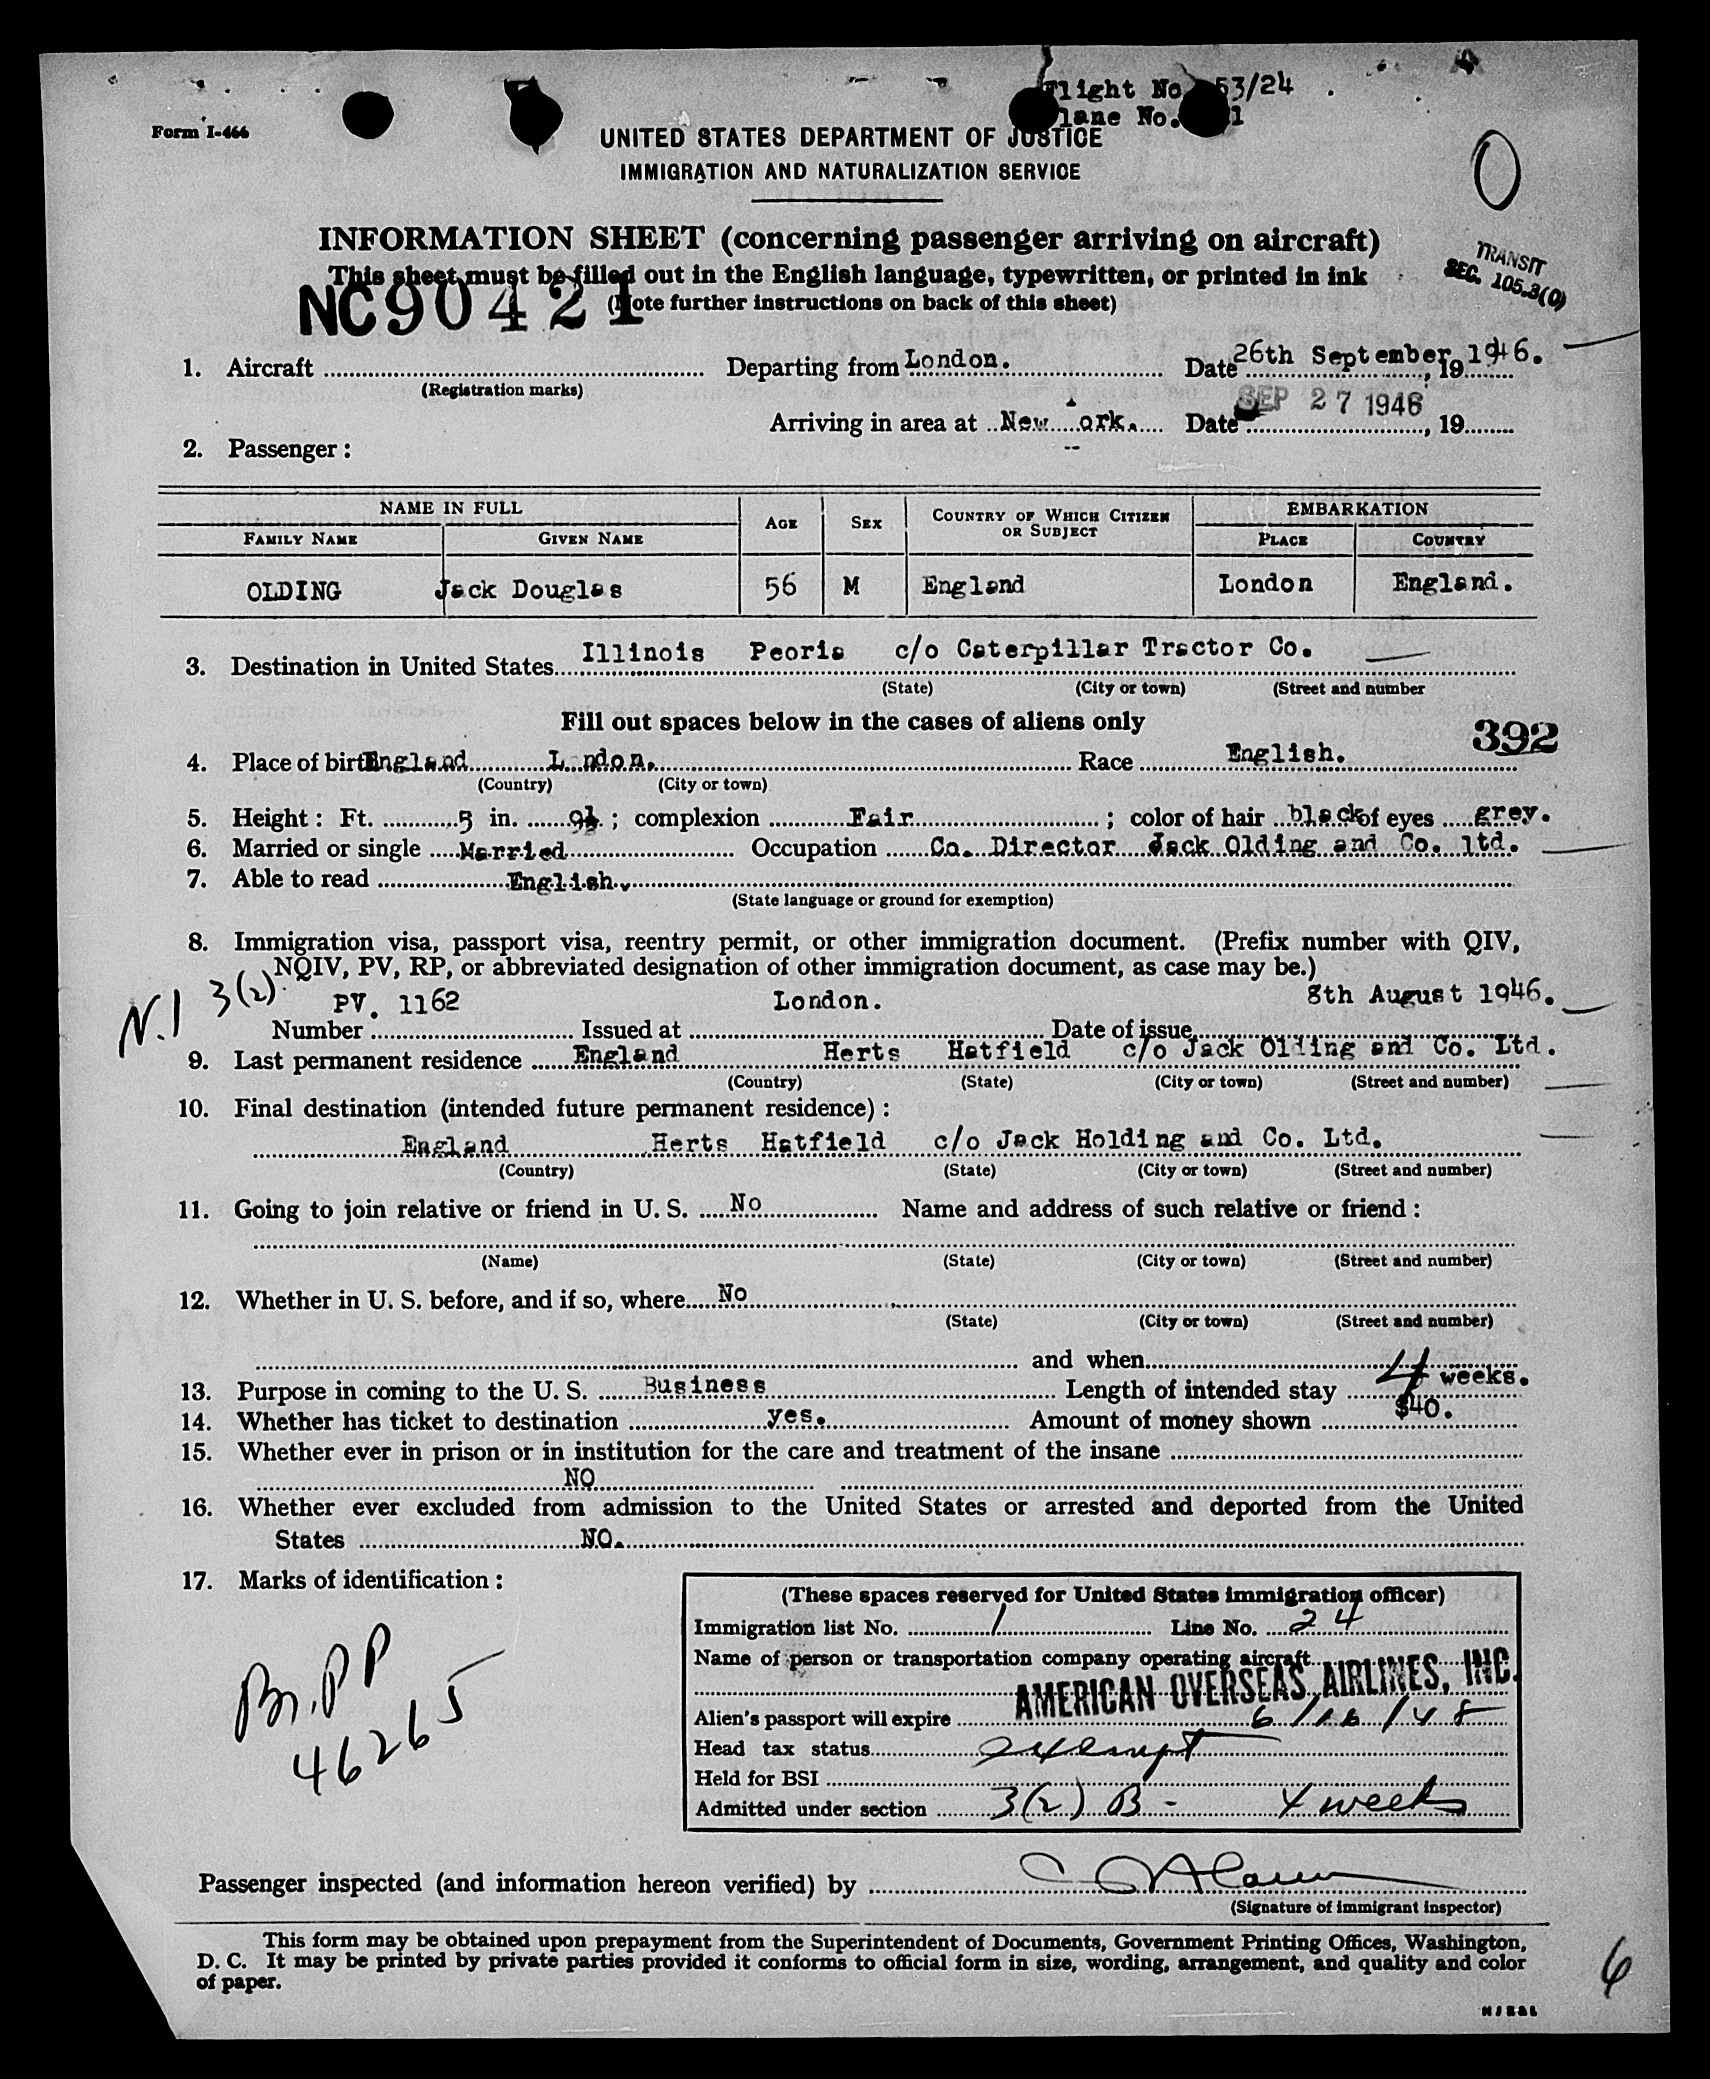 Flight No. 53/24
Plane No. 1
Form I-466
UNITED STATES DEPARTMENT OF JUSTICE
IMMIGRATION AND NATURALIZATION SERVICE
INFORMATION SHEET (concerning passenger arriving on aircraft)
TRANSIT
SEC. 105.3(0)
This sheet must be filled out in the English language, typewritten, or printed in ink
NC90421 (Note further instructions on back of this sheet)
1. Aircraft Departing from London. Date 26th September, 1946.
(Registration marks)
Arriving in area at New ork. Date SEP 27 1946, 19
2. Passenger:
NAME IN FULL AGE SEX COUNTRY OF WHICH CITIZEN OR SUBJECT EMBARKATION
FAMILY NAME GIVEN NAME PLACE COUNTRY
OLDING Jack Douglas 56 M England London England.
3. Destination in United States Illinois Peoria c/o Caterpillar Tractor Co.
(State) (City or town) (Street and number
Fill out spaces below in the cases of aliens only
392
4. Place of birth England L ndon. Race English.
(Country) (City or town)
5. Height: Ft. 5 in. 9½ ; complexion Fair ; color of hair black of eyes grey.
6. Married or single Married Occupation Co. Director Jack Olding and Co. ltd.
7. Able to read English.
(State language or ground for exemption)
8. Immigration visa, passport visa, reentry permit, or other immigration document. (Prefix number with QIV,
NQIV, PV, RP, or abbreviated designation of other immigration document, as case may be.)
N.I 3(2) PV. 1162 London. 8th August 1946.
Number Issued at Date of issue
9. Last permanent residence England Herts Hatfield c/o Jack Olding and Co. Ltd.
(Country) (State) (City or town) (Street and number)
10. Final destination (intended future permanent residence):
England Herts Hatfield c/o Jack Holding and Co. Ltd.
(Country) (State) (City or town) (Street and number)
11. Going to join relative or friend in U. S. No Name and address of such relative or friend:
(Name) (State) (City or town) (Street and number)
12. Whether in U. S. before, and if so, where No
(State) (City or town) (Street and number)
and when
13. Purpose in coming to the U. S. Business Length of intended stay 4 weeks.
14. Whether has ticket to destination yes. Amount of money shown $40.
15. Whether ever in prison or in institution for the care and treatment of the insane
NO
16. Whether ever excluded from admission to the United States or arrested and deported from the United
States NO.
17. Marks of identification:
Br. PP
46265
(These spaces reserved for United States immigration officer)
Immigration list No. 1 Line No. 24
Name of person or transportation company operating aircraft
AMERICAN OVERSEAS AIRLINES, INC.
Alien's passport will expire 6/16/48
Head tax status exempt
Held for BSI
Admitted under section 3(2) B - 4 weeks
Passenger inspected (and information hereon verified) by
(Signature of immigrant inspector)
This form may be obtained upon prepayment from the Superintendent of Documents, Government Printing Offices, Washington,
D. C. It may be printed by private parties provided it conforms to official form in size, wording, arrangement, and quality and color
of paper.
6